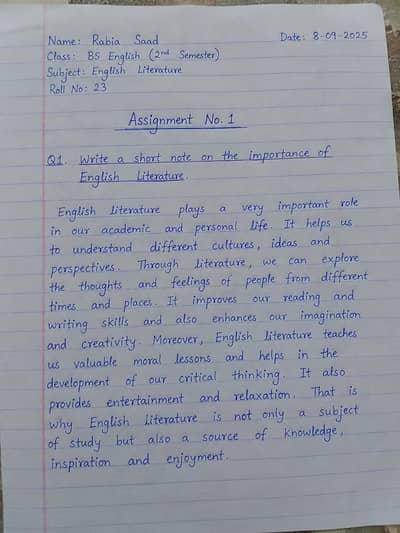 Name: Rabia Saad
Date: 8-09-2025
Class: BS English (2nd Semester)
Subject: English Literature
Roll No: 23
Assignment No. 1
Q1. Write a short note on the importance of
English Literature.
English literature plays a very important role
in our academic and personal life. It helps us
to understand different cultures, ideas and
perspectives. Through literature, we can explore
the thoughts and feelings of people from different
times and places. It improves our reading and
writing skills and also enhances our imagination
and creativity. Moreover, English literature teaches
us valuable moral lessons and helps in the
development of our critical thinking. It also
provides entertainment and relaxation. That is
why English literature is not only a subject
of study but also a source of knowledge,
inspiration and enjoyment.